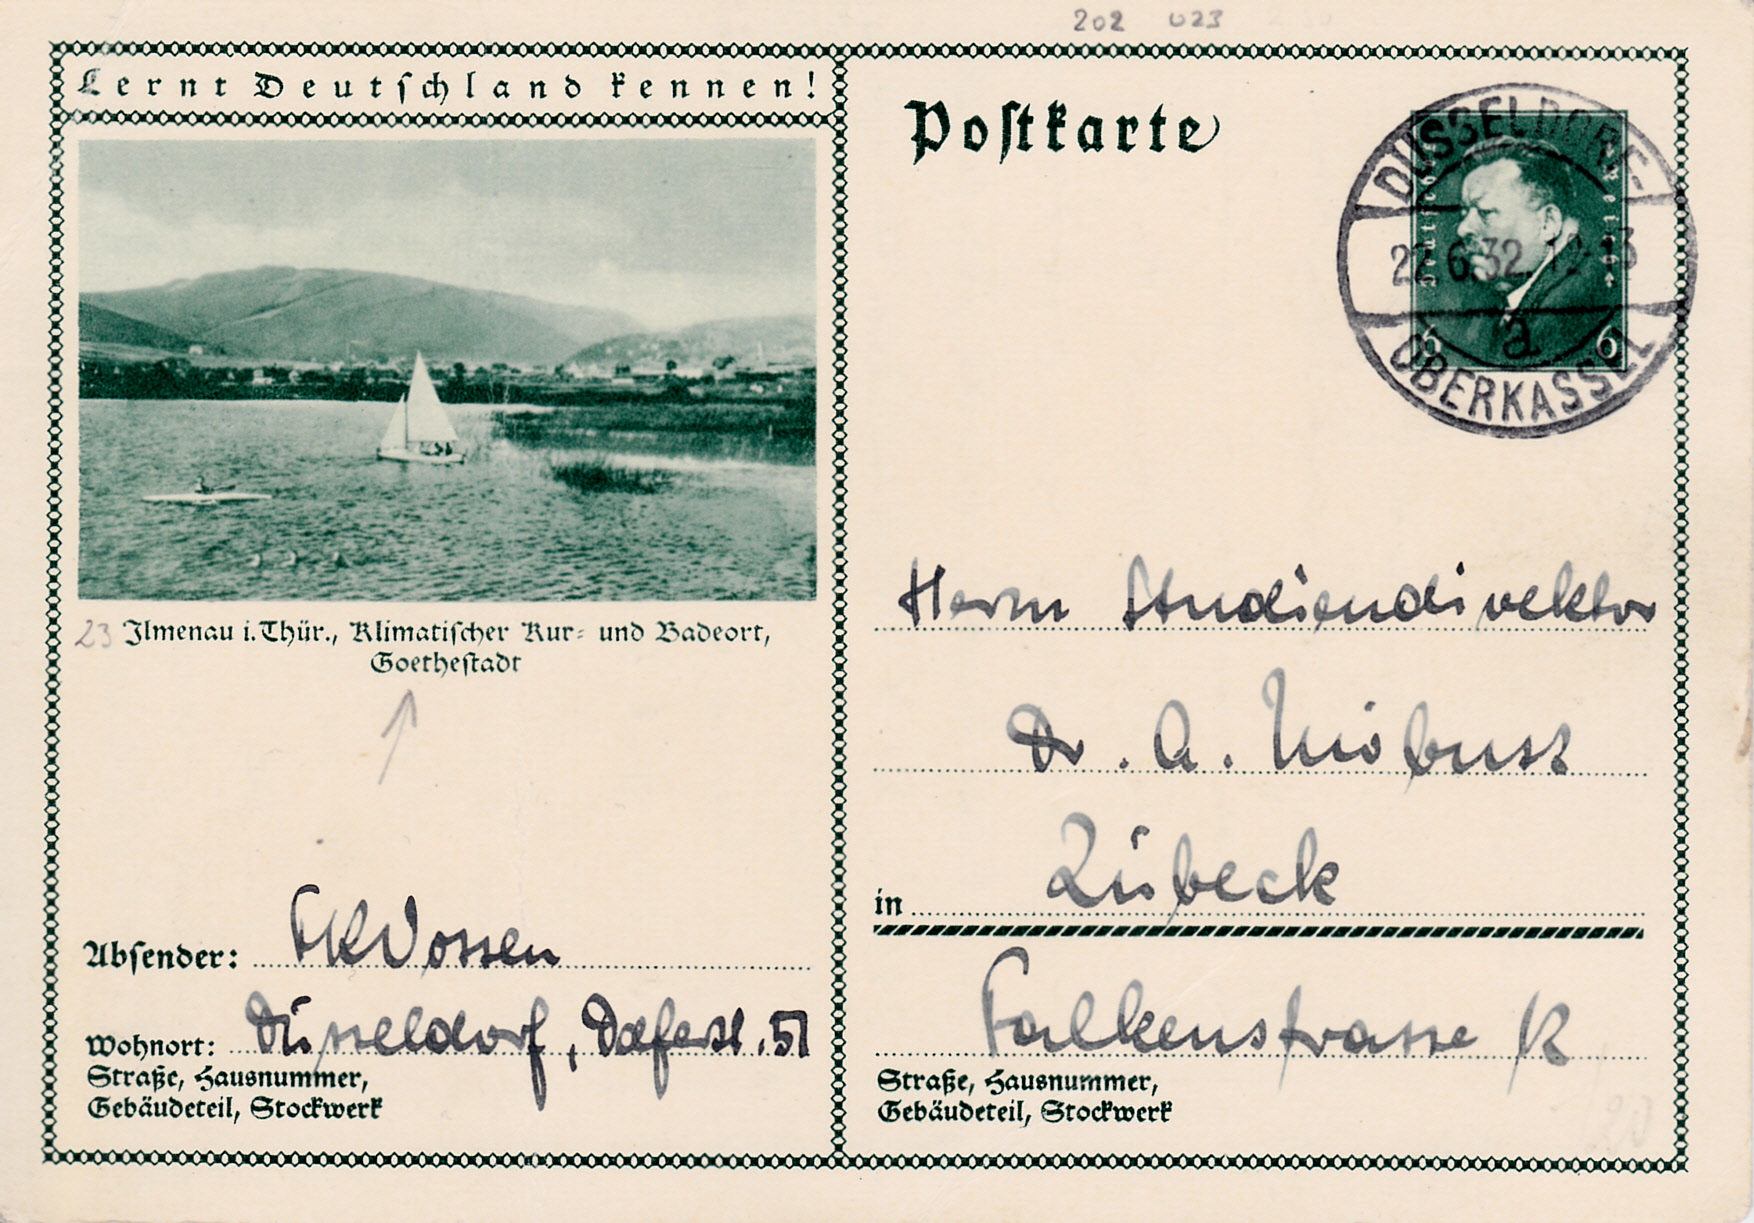 202 023
Lernt Deutschland kennen!
Postkarte
DÜSSELDORF-
22.6.32.12-13
a
OBERKASSEL
Deutsches Reich
6 6
23 Ilmenau i. Thür., Klimatischer Kur- und Badeort,
Goethestadt
Herrn Studiendirektor
Dr. A. Möbusz
in Lübeck
Falkenstrasse 12
Straße, Hausnummer,
Gebäudeteil, Stockwerk
Absender: Vossen
Wohnort: Düsseldorf, 51
Straße, Hausnummer,
Gebäudeteil, Stockwerk